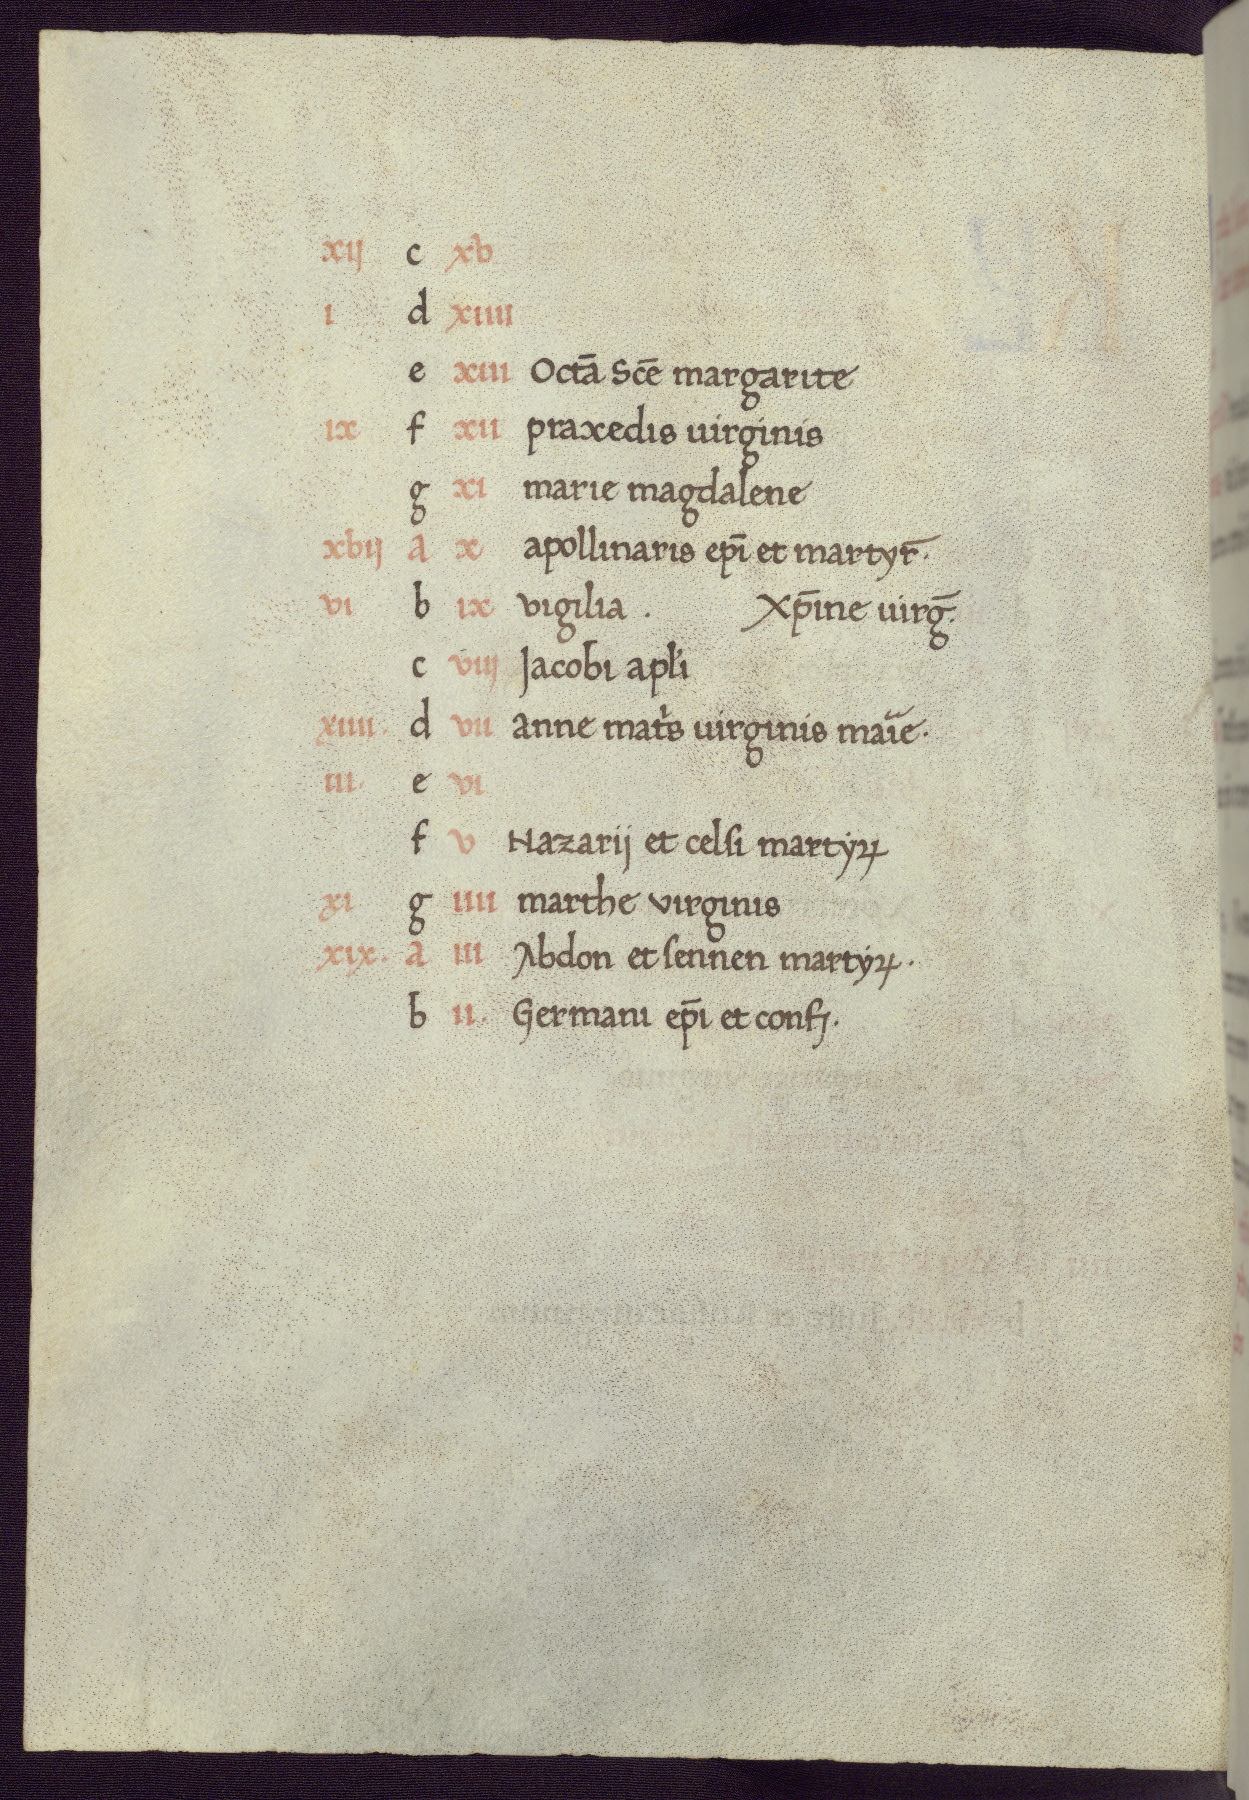 xij c xv
i d xiiii
e xiii Octā Scē margarite
ix f xii praxedis uirginis
g xi marie magdalene
xvij A x apollinaris ep̄i et martyr̄.
vi b ix vigilia . Xp̄ine uirḡ.
c viij Jacobi apl'i
xiiii. d vii anne mat̓s uirginis maīe.
iii. e vi
f v Nazarij et celsi martyꝝ
xi g iiii marthe virginis
xix. A iii Abdon et sennen martyꝝ.
b ii. Germani ep̄i et conf.